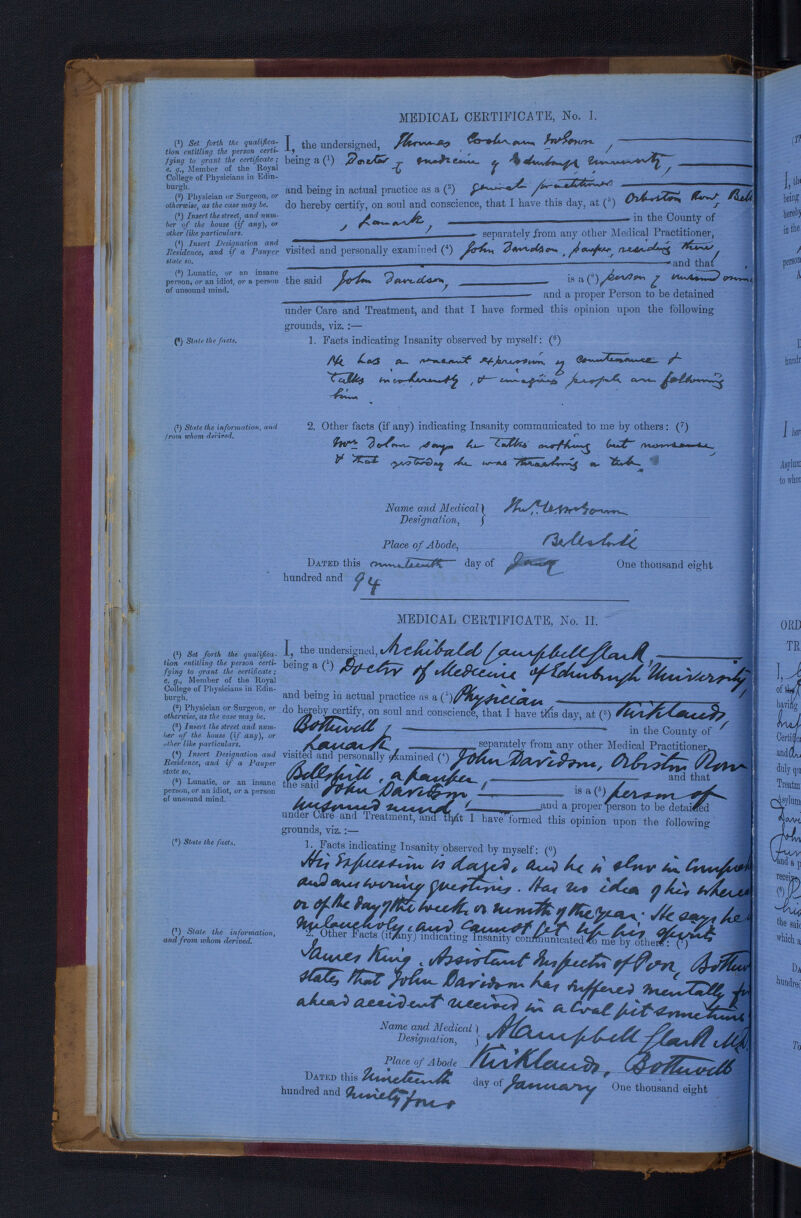 MEDICAL CERTIFICATE, No. I.
(1) Set forth the qualifica-
tion entitling the person certi-
fying to grant the certificate;
e. g., Member of the Royal
College of Physicians in Edin-
burgh.
(2) Physician or Surgeon, or
otherwise, as the case may be.
(3) Insert the street, and num-
ber of the house (if any), or
other like particulars.
(4) Insert Designation and
Residence, and if a Pauper
state so.
(5) Lunatic, or an insane
person, or an idiot, or a person
of unsound mind.
I, the undersigned, Thomas Cochrane
being a (1) Doctor of medicine of Edinburgh University,
and being in actual practice as a (2) general practitioner
do hereby certify, on soul and conscience, that I have this day, at (3) Orbiston Row, Bell
, Lanark, in the County of
separately from any other Medical Practitioner,
visited and personally examined (4) John Davidson, pauper, residing there,
and that
the said John Davidson, is a (5) person of unsound mind
and a proper Person to be detained
under Care and Treatment, and that I have formed this opinion upon the following
grounds, viz. :—
(6) State the facts.
1. Facts indicating Insanity observed by myself: (6)
He has a vacant expression of countenance &
talks incoherently, & imagines people are following
him.
(7) State the information, and
from whom derived.
2. Other facts (if any) indicating Insanity communicated to me by others: (7)
Mrs Dolan says he talks nothing but nonsense,
& that yesterday he was thrashing a tub.
Name and Medical
Designation,
Place of Abode, Bellshill
DATED this nineteenth day of Jany One thousand eight
hundred and 94
MEDICAL CERTIFICATE, No. II.
(1) Set forth the qualifica-
tion entitling the person certi-
fying to grant the certificate;
e. g., Member of the Royal
College of Physicians in Edin-
burgh.
(2) Physician or Surgeon, or
otherwise, as the case may be.
(3) Insert the street and num-
ber of the house (if any), or
other like particulars.
(4) Insert Designation and
Residence, and if a Pauper
state so.
(5) Lunatic, or an insane
person, or an idiot, or a person
of unsound mind.
I, the undersigned, Archibald Campbell Clark
being a (1) Doctor of Medicine of Edinburgh University,
and being in actual practice as a (2) Physician
do hereby certify, on soul and conscience, that I have this day, at (3) Kirklands,
Bothwell, in the County of
Lanark, separately from any other Medical Practitioner,
visited and personally examined (4) John Davidson, Orbiston Row
Bellshill, a pauper and that
the said John Davidson is a (5) person of
unsound mind, and a proper person to be detained
under Care and Treatment, and that I have formed this opinion upon the following
grounds, viz. :—
(6) State the facts.
1. Facts indicating Insanity observed by myself: (6)
His expression is dazed, and he is slow in
and answering questions. Has no idea of his
or of the day of the week or month of the year. He says he
melancholy, and cannot get up his spirits
(7) State the information,
and from whom derived.
2. Other Facts (if any) indicating Insanity communicated to me by others: (7)
James King, Assistant Inspector of Poor, Bothwell
states that John Davidson has suffered mentally
a head accident received in a coal pit
Name and Medical
Designation, A Campbell Clark M.D.
Place of Abode Kirklands, Bothwell
DATED this Nineteenth day of January One thousand eight
hundred and ninety four